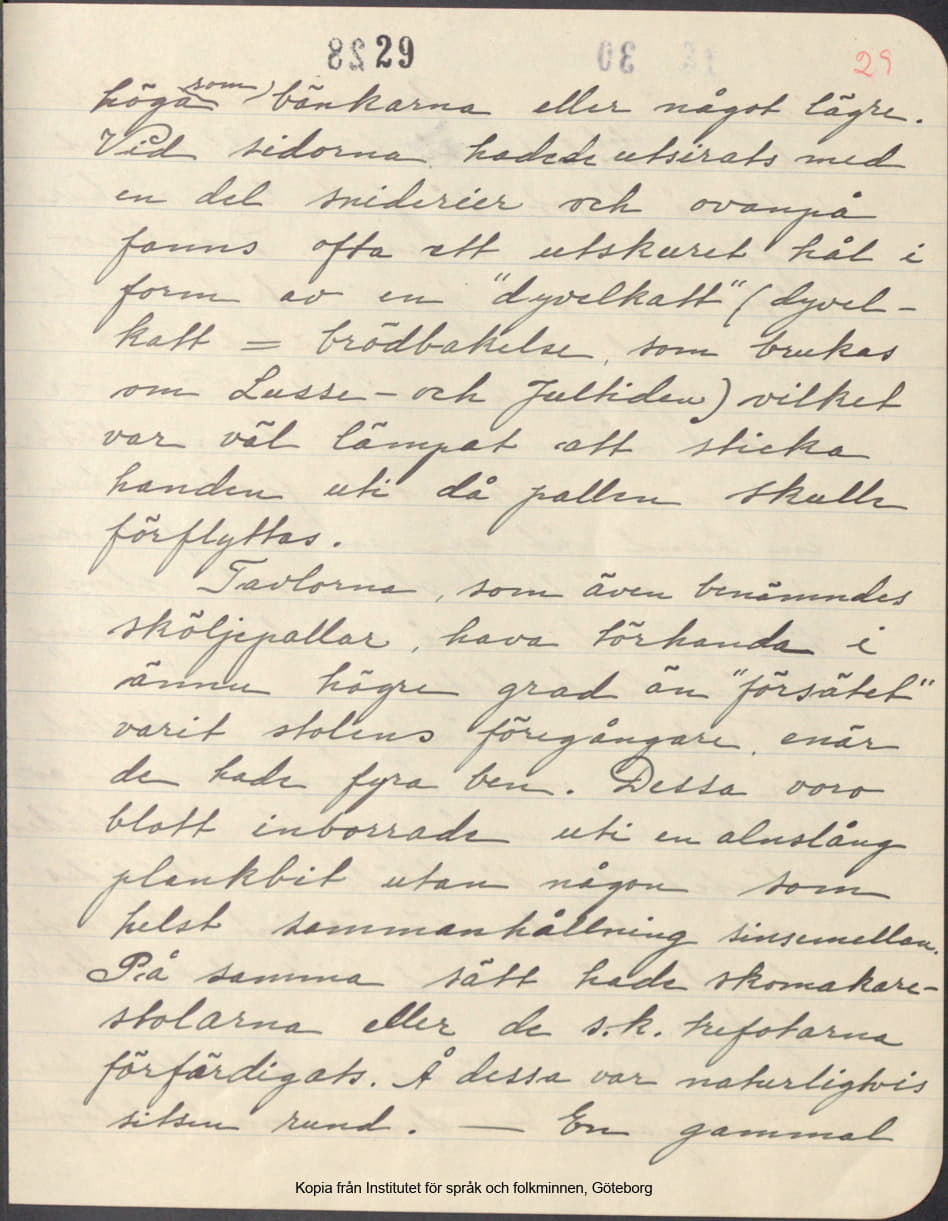 29
29
höga som bänkarna eller något lägre.
Vid sidorna hade de utsirats med
en del sniderier och ovanpå
fanns ofta ett utskuret hål i
form av en "dyvelkatt" (dyvel-
katt = brödbakelse, som brukas
om Lusse- och Jultiden) vilket
var väl lämpat att sticka
handen uti då pallen skulle
förflyttas.
Tavlorna, som även benämndes
sköljepallar, hava törhända i
ännu högre grad än "försätet"
varit stolens föregångare, enär
de hade fyra ben. Dessa voro
blott inborrade uti en alnslång
plankbit utan någon som
helst sammanhållning sinsemellan.
På samma sätt hade skomakare-
stolarna eller de s.k. trefotarna
förfärdigats. Å dessa var naturligtvis
sitsen rund. — En gammal
Kopia från Institutet för språk och folkminnen, Göteborg